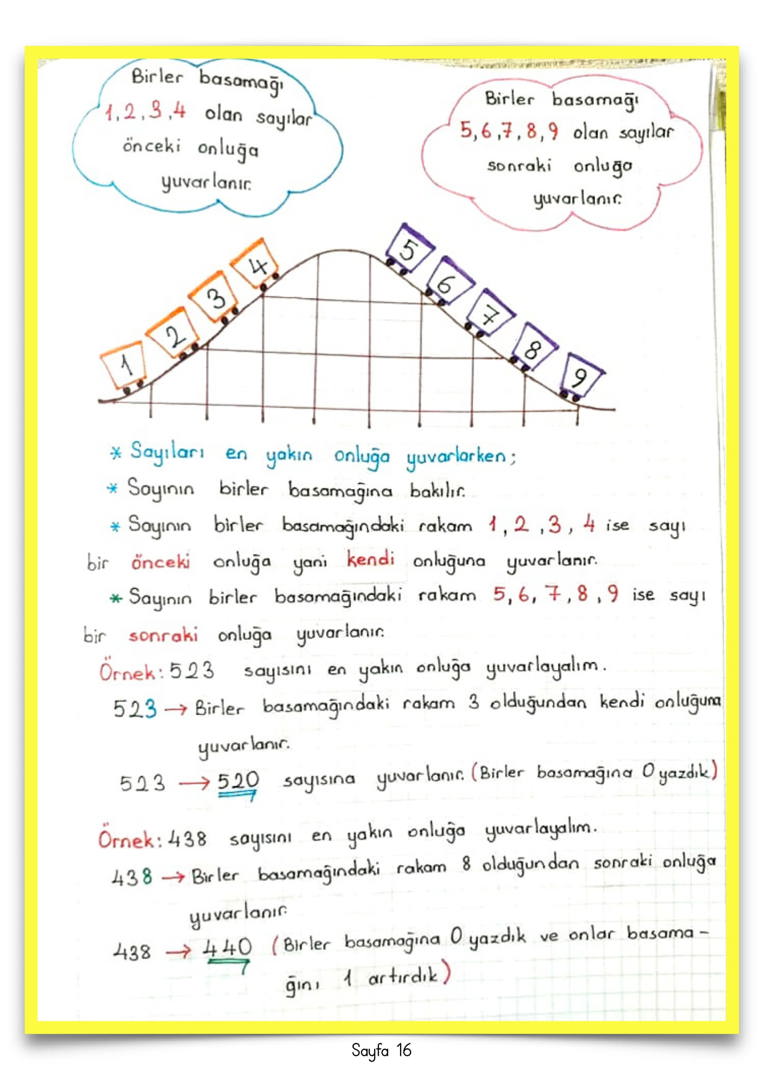 Birler basamağı
1,2,3,4 olan sayılar
önceki onluğa
yuvarlanır.
Birler basamağı
5,6,7,8,9 olan sayılar
sonraki onluğa
yuvarlanır.
1 2 3 4 5 6 7 8 9
* Sayıları en yakın onluğa yuvarlarken;
* Sayının birler basamağına bakılır.
* Sayının birler basamağındaki rakam 1, 2, 3, 4 ise sayı
bir önceki onluğa yani kendi onluğuna yuvarlanır.
* Sayının birler basamağındaki rakam 5, 6, 7, 8, 9 ise sayı
bir sonraki onluğa yuvarlanır.
Örnek: 523 sayısını en yakın onluğa yuvarlayalım.
523 → Birler basamağındaki rakam 3 olduğundan kendi onluğuna
yuvarlanır.
523 → 520 sayısına yuvarlanır. (Birler basamağına 0 yazdık)
Örnek: 438 sayısını en yakın onluğa yuvarlayalım.
438 → Birler basamağındaki rakam 8 olduğundan sonraki onluğa
yuvarlanır.
438 → 440 (Birler basamağına 0 yazdık ve onlar basama-
ğını 1 artırdık)
Sayfa 16